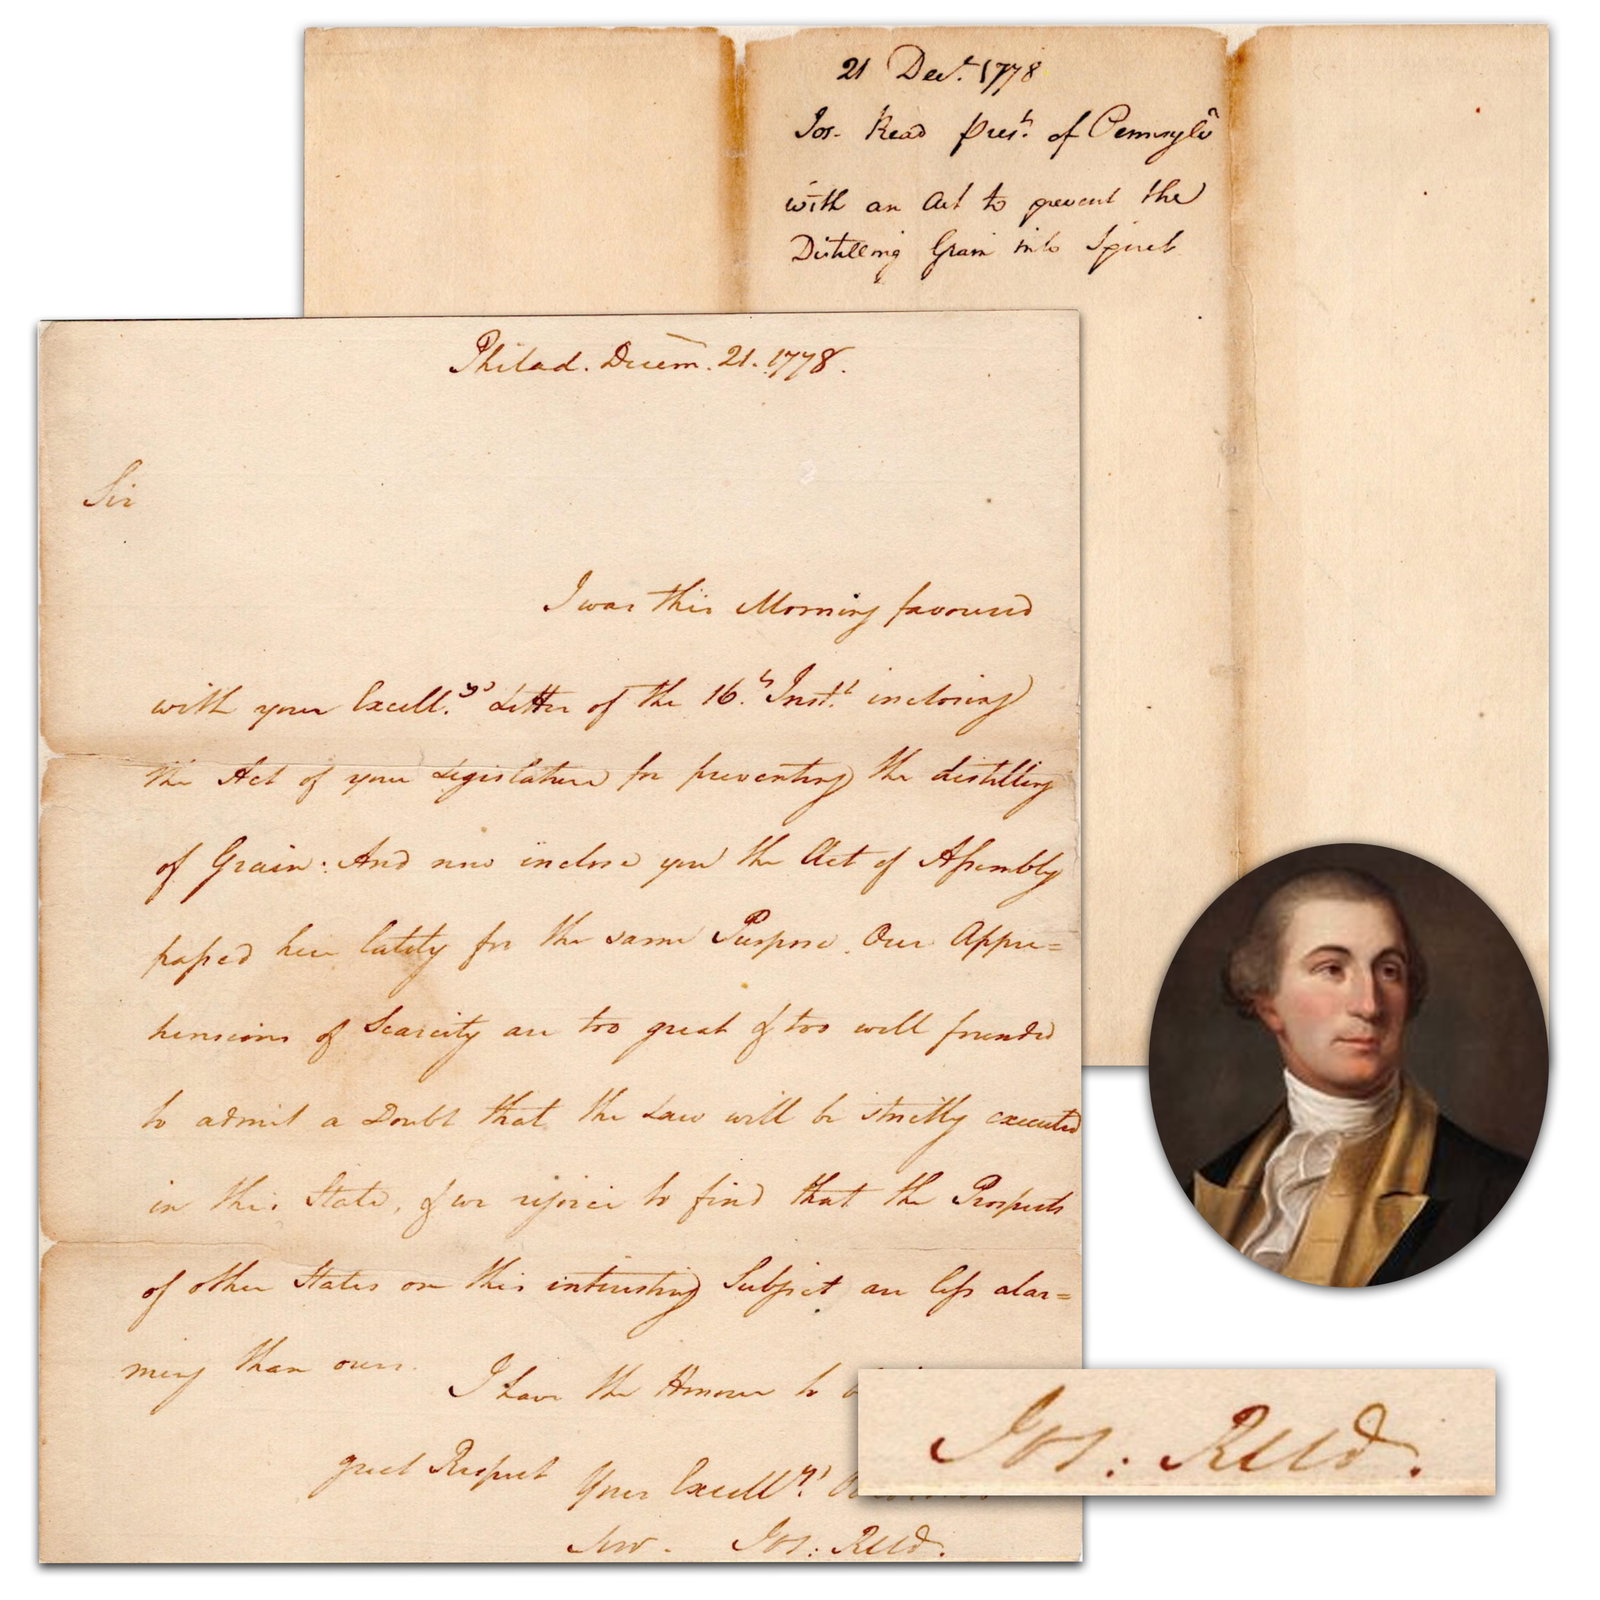 21 Decr. 1778
Jos. Read Prest. of Pennsylv
with an Act to prevent the
Distilling Grain into Spirit
Philad. Decem. 21. 1778.
Sir
I was this Morning favoured
with your Excell.ys Letter of the 16.th Inst.t inclosing
the Act of your Legislature for preventing the distilling
of Grain: And now inclose you the Act of Assembly
passed here lately for the same Purpose. Our Appre=
hensions of Scarcity are too great & too well founded
to admit a Doubt that the Law will be strictly executed
in this State, & we rejoice to find that the Prospects
of other States on this interesting Subject are less alar=
ming than ours.
I have the Honour to
great Respect
Your Excell.ys
Serv. Jos: Reed.
Jos: Reed.